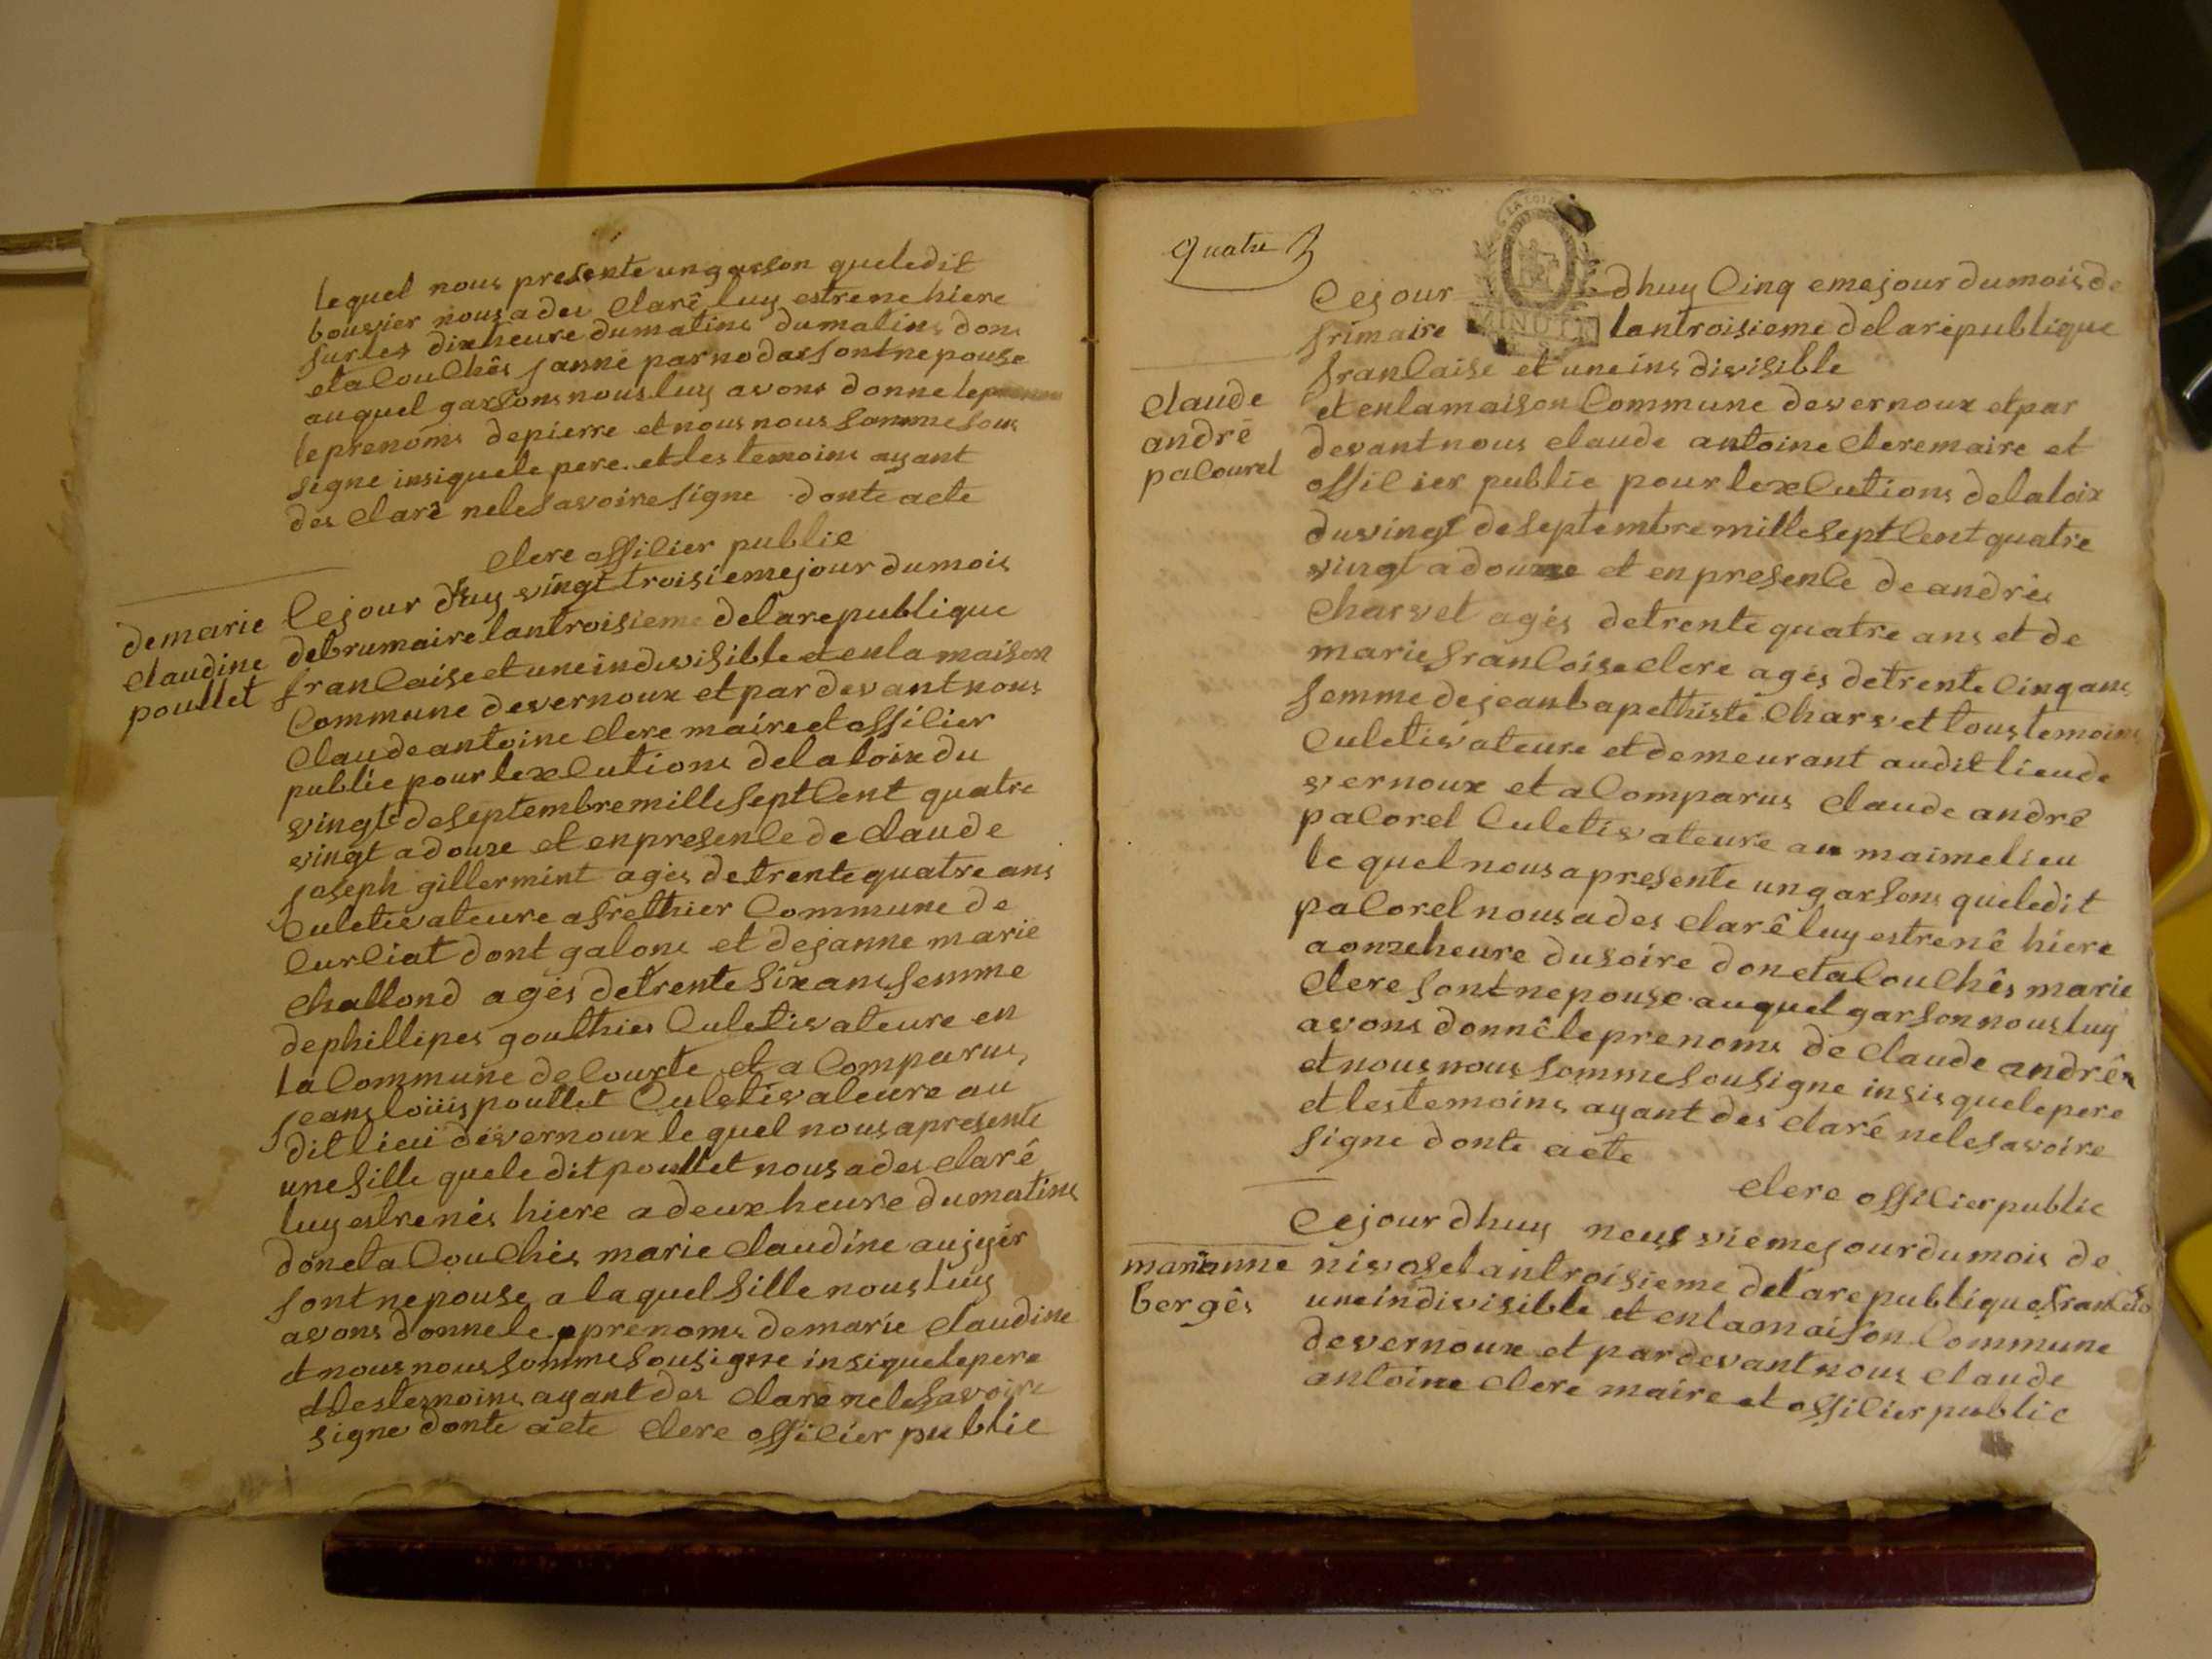 lequel nous presente un garson queledit
bouvier nous a des Clarê luy estre ne hiere
sur les dix heure du matins du matins dons
eta Couchês janne parnodas sont ne pouse
auquel garsons nous luy avons donne le
le prenoms de pierre et nous nous somme sous
signe insi quele pere et les temoins ayant
des Clarê neles avoire signe donte acte
Clere offilier public
de marie
Claudine
poullet
Cejour dhuy vingt troisieme jour du mois
de brumaire lan troisieme de la republique
franCaise et une indivisible et en la maison
Commune de vernoux et par devant nous
Claude antoine Clere maire et offilier
public pour lexCutions de la loix du
vingts de septembre mille sept Cent quatre
vingt a douze et en presenCe de Claude
joseph gillermint agés de trente quatre ans
Culetivateure a frethier Commune de
CurCiat dont galons et de janne marie
Challond agés de trente six ans femme
de phillipes gouthier Culetivateure en
la Commune de Courte et a Comparus,
jeans loiiis poullet Culetivateure au
dit lieu de vernoux le quel nous a presente
une fille quele dit poullet nous a des Claré
luy estre nés hiere a deux heure du matins
don eta Couchés marie Claudine aujyér
sont ne pouse a la quel fille nous luy
avons donne le prenoms de marie Claudine
et nous nous somme sousigne insi quele pere
et les temoins ayant des Clare neles savoire
signe donte acte Clere offilier public
quatre
Cejour dhuy Cinq eme jour du mois de
frimaire lan troisieme de la republique
LA LOI
MINUTE
franCaise et une ins divisible
Claude
andrè
paCourel
et en la maison Commune de vernoux et par
devant nous Claude antoine Clere maire et
offilier public pour lexCutions de la loix
du vingt de septembre mille sept Cent quatre
vingt a douze et en presenCe de andrés
Charvet agés de trente quatre ans et de
marie franCoise Clere agés de trente Cinq ans
femme de jean bapethiste Charvet tous temoins
Culetivateure et demeurant audit lieu de
vernoux et a Comparus Claude andrê
paCorel Culetivateure au maime lieu
le quel nous a presente un garsons quele dit
paCorel nous a des Clarê luy estre nê hiere
a onze heure du soire don eta Couchês marie
Clere sont ne pouse auquel garson nous luy
avons donnê le prenoms de Claude andrês
et nous nous somme sousigne insis quele pere
et les temoins ayant des Claré neles avoire
signe donte acte
Clere offilier public
marianne
bergês
Cejour dhuy neuf vieme jour du mois de
nivose lan troisieme de la republique franCaise
une indivisible et en la maison Commune
de vernoux et par devant nous Claude
antoine Clere maire et offilier public